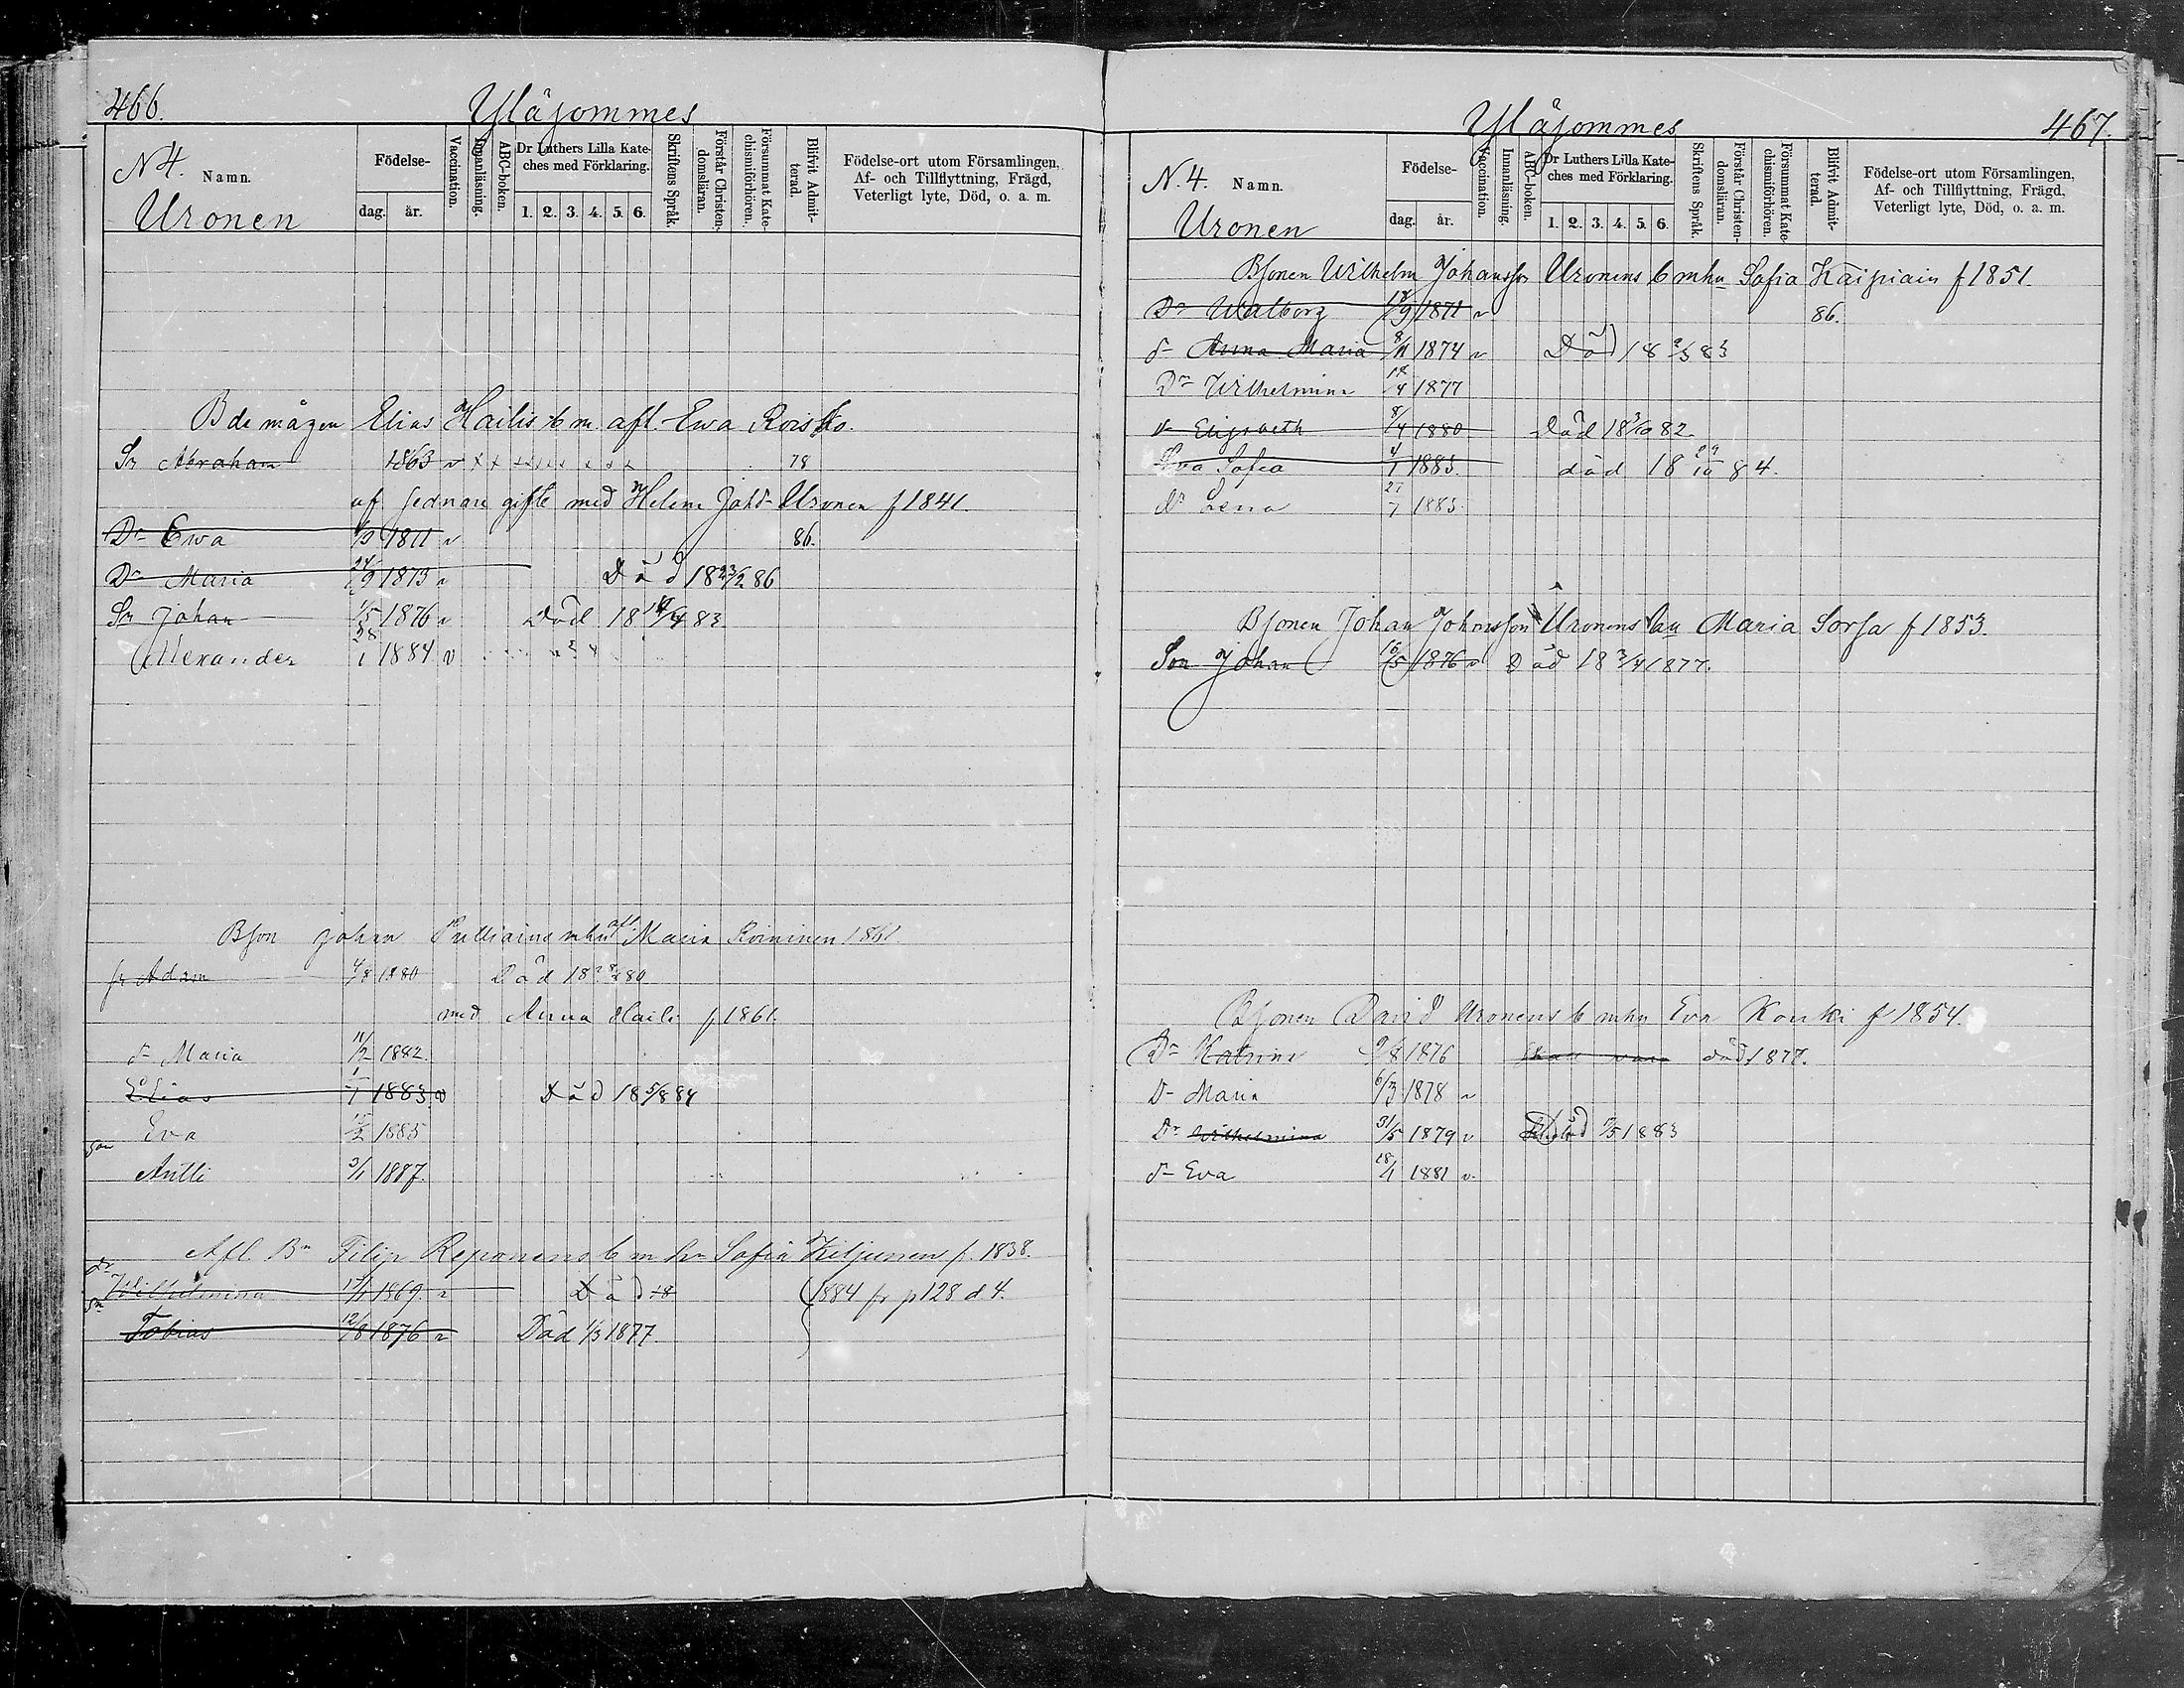 466.
Yläjommes
N 4. Namn.
Uronen
Födelse-
dag. år.
Vaccination.
Innanläsning.
ABC-boken.
Dr Luthers Lilla Kate-
ches med Förklaring.
1. 2. 3. 4. 5. 6.
Skriftens Språk.
Förstår Christen-
domsläran.
Försummat Kate-
chismiförhören.
Blifvit Admit-
terad.
Födelse-ort utom Församlingen,
Af- och Tillflyttning, Frägd,
Veterligt lyte, Död, o. a. m.
B de mågen Elias Hailis b m. afl. Ewa Roisko.
Sn Abraham 1863 v x x x x x x x x x 78
af sednare gifte med Helena Johd. Uronen f 1841.
Dr Ewa 1871 v 86.
Dr Maria 24/9 1873 v Död 18 23/2 86
Sn Johan 1/5 1876 v Död 18 /4 83
Alexander 28/1 1884 v
Bson Johan Pulliains mhu afl. Maria Roininen 1861
sn Adam 4/8 1880 Död 18 80
med Anna Haili f 1861.
dr Maria 11/2 1882.
Elias 1/1 1883. v Död 18 5/8 84
Eva 12/2 1885
son Antti 3/1 1887.
Afl. Bn Filip Reponens b m hu Sofia Kiljunen f. 1838.
dr Wilhelmina 1869. v Död 18 (1884 fr p 128 d 4.
sn Tobias 12/8 1876 v Död 1/3 1877.
Yläjommes
467.
N. 4. Namn.
Uronen
Födelse-
dag. år.
Vaccination.
Innanläsning.
ABC-boken.
Dr Luthers Lilla Kate-
ches med Förklaring.
1. 2. 3. 4. 5. 6.
Skriftens Språk.
Förstår Christen-
domsläran.
Försummat Kate-
chismiförhören.
Blifvit Admit-
terad.
Födelse-ort utom Församlingen,
Af- och Tillflyttning, Frägd,
Veterligt lyte, Död, o. a. m.
Bsonen Wilhelm Johansson Uronens b mhu Sofia Kaipiain f 1851.
Dr Walborg 18/9 1871 v 86.
dr Anna Maria 8/11 1874 v Död 18 2/3 83
Dr Wilhelmina 18/4 1877
dr Elisabeth 8/4 1880 Död 18 3/10 82.
Eva Sofia 4/1 1883. död 18 29/10 84.
dr Lena 27/7 1885.
Bsonen Johan Johansson Uronens hu Maria Sorsa f 1853.
Son Johan 16/5 1876 v Död 18 3/4 1877.
Bsonen David Uronens b mhu Eva Kouki f 1854.
Dr Katrina 9/8 1876 skall vara död 1877.
D Maria 6/3 1878 v
Dr Wilhelmina 31/5 1879 v Död /5 1883
dr Eva 18/1 1881 v.